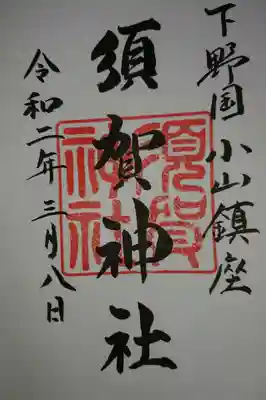 下野国小山鎮座
須賀神社
令和二年三月八日
須賀神社